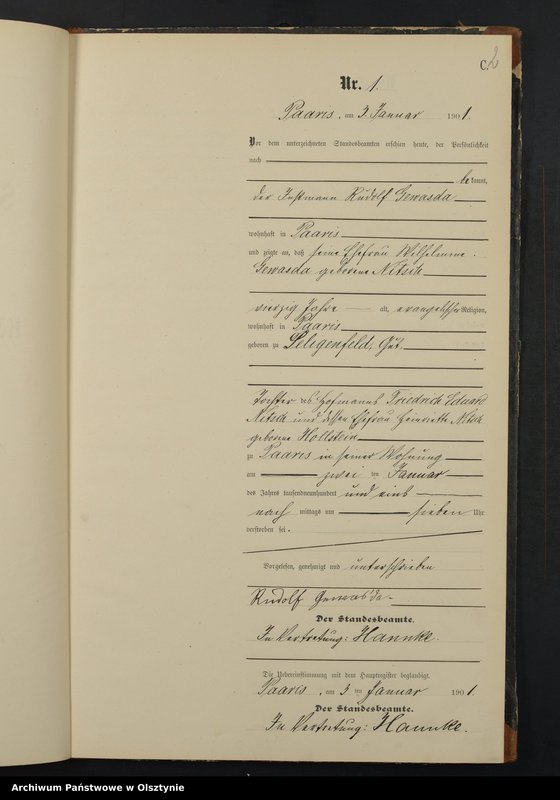 C. 2
Nr. 1.
Paaris, am 3 Januar 1901.
Vor dem unterzeichneten Standesbeamten erschien heute, der Persönlichkeit
nach
bekannt,
der Instmann Rudolf Gewasda
wohnhaft in Paaris
und zeigte an, daß seine Ehefrau Wilhelmine
Gewasda geborene Nitsch
vierzig Jahre alt, evangelischer Religion,
wohnhaft in Paaris
geboren zu Seligenfeld, Gut,
Tochter des Hofmanns Friedrich Eduard
Nitsch und dessen Ehefrau Henriette Nitsch
geborene Hollstein
zu Paaris in seiner Wohnung
am zwei ten Januar
des Jahres tausendneunhundert und eins
nach mittags um sieben Uhr
verstorben sei.
Vorgelesen, genehmigt und unterschrieben
Rudolf Gewasda
Der Standesbeamte.
In Vertretung: Hannke.
Die Uebereinstimmung mit dem Hauptregister beglaubigt.
Paaris, am 3 ten Januar 1901.
Der Standesbeamte.
In Vertretung: Hannke.
Archiwum Państwowe w Olsztynie